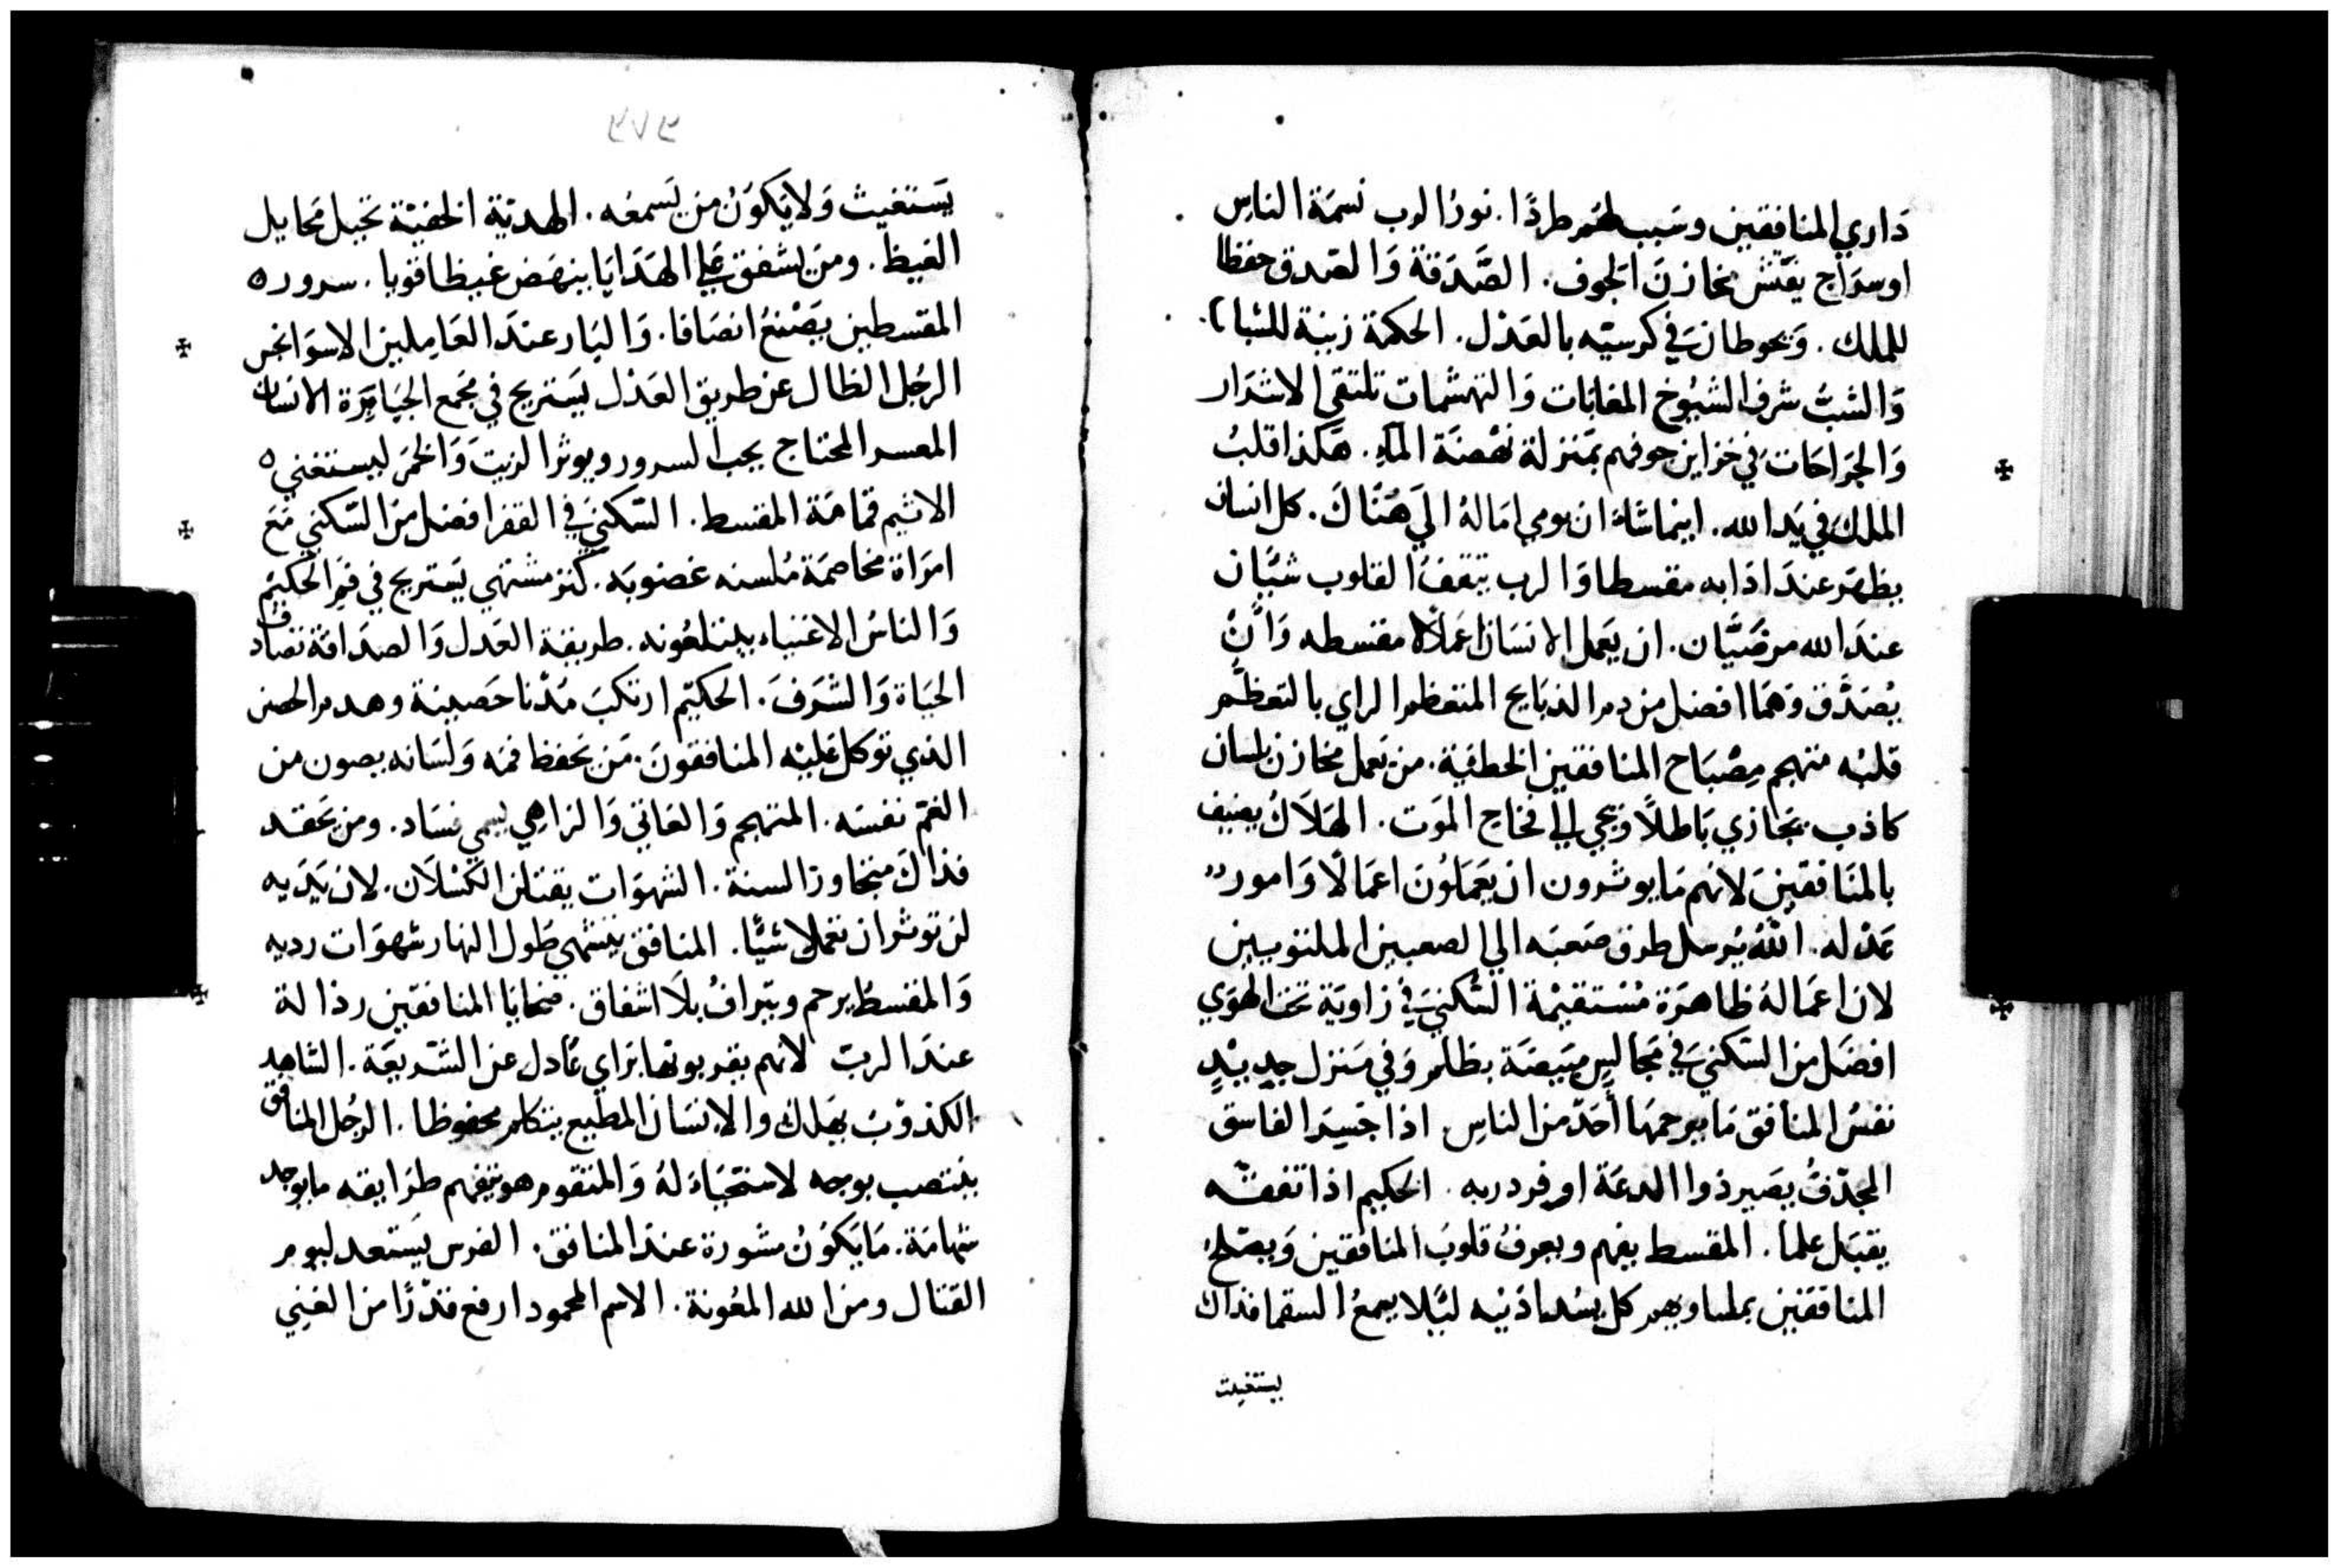 دَاري المنافِقين وسَيب لهُم طردًا. نورُ الرب نسمَة الناسِ
او سرَاج يفتّش مخازنَ الجوف. الصَّدَقة وَالصّدق حفظا
للملك. وَيحوطانَ في كرسيّه بالعَدْل. الحكمة زينة للشباب
وَالشيبُ شرف الشيُوخ المغابَات وَالتهشمات تلتقي الاشرَار
وَالجرَاحَات في خزاين جوفهم بمَنزلة نهْضة الماءِ. هَكذا قلبُ
الملك في يَد الله. اينما شاءَ ان يومي امَالهُ الي هُنَاكَ. كل انسان
يظهر عندَ اذَابه مقسطا وَالرب يثقفُ القلوب شيَّان
عندَ الله مرضَيَّان. ان يَعمل الانسَان اعمَالًا مقسطه وَانْ
يُصَدَّق وَهمَا افضل من دم الدبَايح المتعظم الراي بالتعظُّم
قلبُه متهجم مِصْبَاح المنافقين الخطيَة. من يَعمل مخازن بلسان
كاذب يجَازي بَاطلًا ويجي الي فخاخ الموَت. الهَلاَكُ يضيف
بالمنَافقينَ لانهم مَا يوثرون ان يَعمَلُونَ اعمَالًا وَامور
عَدْله. اللهُ يُرسل طرق صَعبَه الي الصعبين الملتويين
لان اعمَالهُ ظاهرَة مُسْتقيْمة السُكنيَ في زاويَة تحتَ الهوَي
افضَل من السّكنيَ في مَجالسٍ مبَيضَة بظلم وَفي مَنزل جديْدٍ
نفسُ المنافق مَا يرحمهَا أَحَدٌ من الناسِ اذا خَسِرَ الفاسق
المجدّفُ يصَير ذوا الدعَة او فر دربه. الحكيم اذا تفقّه
يقبَل علما. المقسط يفهم ويعرفُ قلوبَ المنافقين وَيصلح
المنافقين كل يسُد اذنيه ليَلا يسمعُ السقما فذاك
يستغيت
٧٧٩
يَستغيث وَلا يَكوَنُ من يَسمعُه. الهديّة الخفيّة تجبل مَحايل
الغيظ. ومَن يشفق عَلي الهَدَايَا ينهَض غيظا قويا. سرور
المقسطين يصْنعُ انصَافا. وَالبَار عندَ العَامِلين الاسوَا نجس
الرجُل الظال عن طريق العَدْل يَستريح في مَجمع الجبَابِرَة الانسان
المعسر المحتاج يحب السرور ويوثر الزيتَ وَالخمرَ ليستغني
الاثيم قمامَة المقسط. السّكنيَ في القفر افضل من السّكني مَعَ
امرَاة مخاصمَة مُلسنه غضوبَه. كنز مشتهي يَستريح في فم الحكيم
وَالناسُ الاغنياء يبتلعُونه. طريقة العَدل وَالصدَاقة تصادف
الحيَاة وَالشَرَفَ. الحكيم ارتكبَ مُدْنا حَصينة وهدم الحصن
الذي توكل عَليْه المنافقونَ. مَن يَحفظ فمَه وَلسَانه يصون من
الغمّ نفسَه. المتهجم وَالعَاتي وَالزاهِي يسمي فسَاد. ومن يَحقد
فذاكَ متجاوز السنة. الشهوَات يقتلن الكَسْلاَن. لان يَدَيه
لن توثر ان تعملا شيًّا. المنافق يشتهي طول النهار شهوَات رديه
وَالمقسط يرحم ويترافُ بلَا اشفاق. ضحايا المنافقين رذالة
عندَ الربّ لانهم يقربونها براي عَادل عن الشريعَة. الشاهد
الكذوْبُ يهلك والانسَان المطيع يتكلم محفوظا. الرجُل المنافق
ينتصب بوجه لا ستحيَاءَ لهُ وَالمتقوم هو يتفهم طرَايقه ما يوجد
شهامَة. مَا يَكوَنُ مشورة عندَ المنافق. الفرس يَستعد ليوم
القتال ومن الله المعُونة. الاسم المحمود ارفع قدْرًا من الغِني